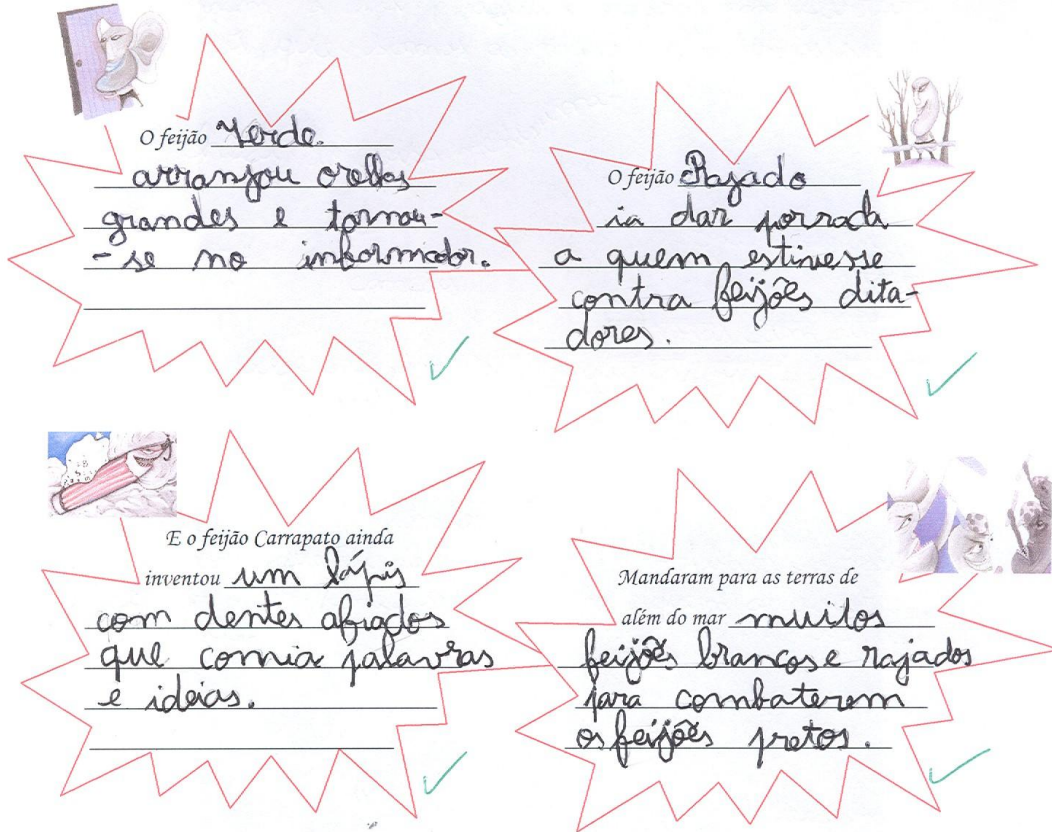 O feijão Verde.
arranjou orelhas
grandes e tornou-
-se no informador.
O feijão Rajado
ia dar porrada
a quem estivesse
contra feijões dita-
dores.
E o feijão Carrapato ainda
inventou um lápis
com dentes afiados
que comia palavras
e ideias.
Mandaram para as terras de
além do mar muitos
feijões brancos e rajados
para combaterem
os feijões pretos.